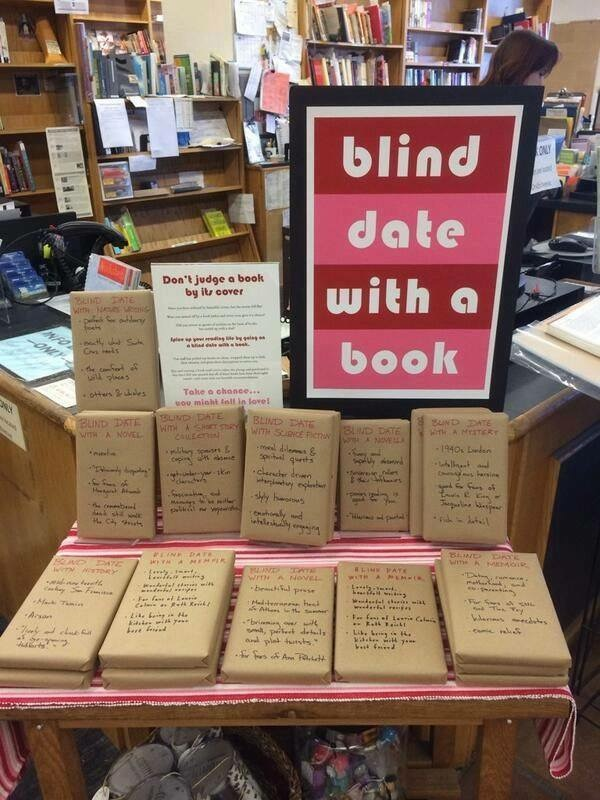 blind
date
with a
book
Don't judge a book
by its cover
Spice up your reading life by going on
a blind date with a book.
Take a chance...
you might fall in love!
ONLY
BLIND DATE
WITH NATURE WRITING
- perfect for outdoorsy
poets
- exactly what Santa
Cruz needs
- the comfort of
wild places
- otters & whales
BLIND DATE
WITH A NOVEL
- for fans of
Margaret Atwood
- the cremated
dead still walk
the City streets
BLIND DATE
WITH A SHORT STORY
COLLECTION
- military spouses &
coping with absence
- get-under-your-skin
characters
- fascinating, and
manages to be neither
political nor voyeuristic
BLIND DATE
WITH SCIENCE FICTION
- moral dilemmas &
spiritual quests
- character driven
interplanetary exploration
- slyly humorous
- emotionally and
intellectually engaging
BLIND DATE
WITH A NOVELLA
- funny and
superbly observed
- sovereign rules
& their
- proves reading is
good for you
- hilarious and pointed
BLIND DATE
WITH A MYSTERY
- 1940s London
- intelligent and
courageous heroine
- good for fans of
Laurie R. King or
Jacqueline Winspear
- rich in detail
BLIND DATE
WITH HISTORY
- mid-nineteenth
century San Francisco
- Mark Twain
- Arson
- lively and chock full
of eye-popping
tidbits"
BLIND DATE
WITH A MEMOIR
- Lovely, smart,
heartfelt writing
- Wonderful stories with
wonderful recipes
- For fans of Laurie
Colwin or Ruth Reichl
- Like being in the
kitchen with your
best friend
BLIND DATE
WITH A NOVEL
- beautiful prose
- Mediterranean heat
of Athens in the summer
- "brimming over with
small, perfect details
and plot twists"
- for fans of Ann Patchett
BLIND DATE
WITH A MEMOIR
- Lovely, smart,
heartfelt writing
- Wonderful stories with
wonderful recipes
- For fans of Laurie Colwin
or Ruth Reichl
- Like being in the
kitchen with your
best friend
BLIND DATE
WITH A MEMOIR
- Dating, romance,
motherhood, and
co-parenting
- For fans of SNL
and Tina Fey
- hilarious anecdotes
- comic relief